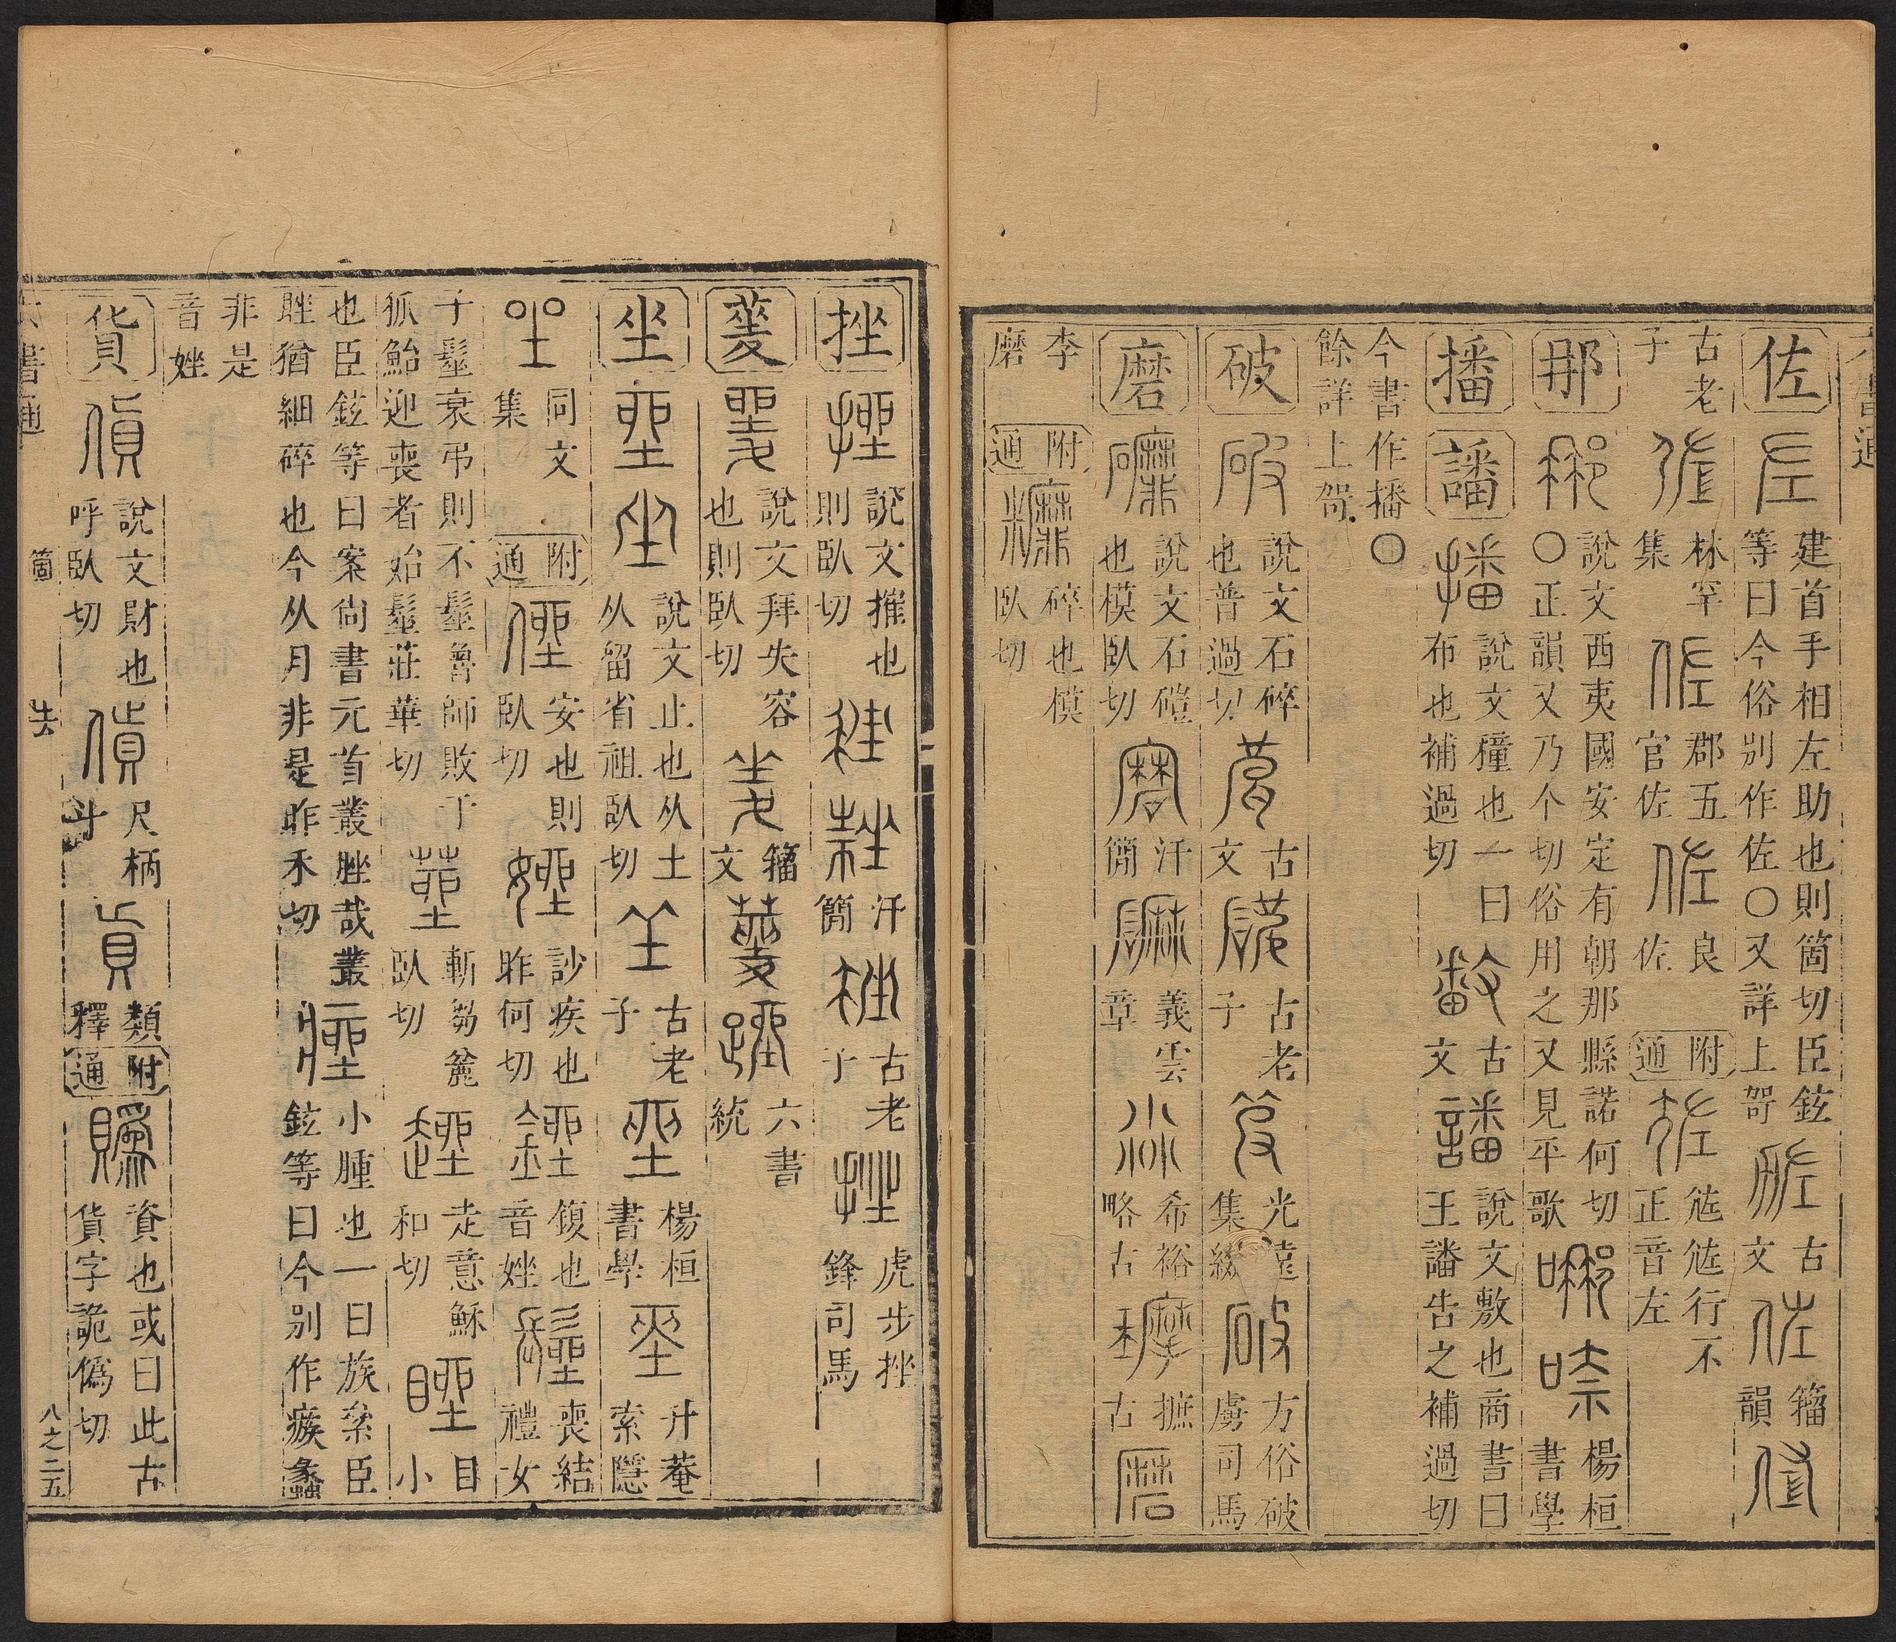 佐 建首手相左助也則箇切臣鉉等曰今俗別作佐〇又詳上哿 古文 籀韻
古老子 林罕集 郡五官佐 良佐 附通 尯尯行不正音左
那 說文西夷國安定有朝那縣諾何切〇正韻又乃个切俗用之又見平歌 楊桓書學
播 譒 說文穜也一曰布也補過切 古文 說文敷也商書曰王譒告之補過切
今書作播〇餘詳上哿
破 說文石碎也普過切 古文 古老子 光遠集綴 方俗破虜司馬
磨 說文石磑也模臥切 汗簡 義雲章 希裕略古 摭古
李磨 附通 碎也模臥切
挫 說文摧也則臥切 汗簡 古老子 虎步挫鋒司馬
夎 說文拜失容也則臥切 籀文 六書統
坐 說文止也从土从留省祖臥切 古老子 楊桓書學 升菴索隱
同文集 附通 安也則臥切 訬疾也昨何切 鍑也音矬 喪結禮女
子髽衰弔則不髽魯師敗于狐鮐迎喪者始髽莊華切 斬芻臥切 走意穌和切 目小
也臣鉉等曰案尚書元首叢脞哉叢脞猶細碎也今从月非是昨禾切 小腫也一曰族絫臣鉉等曰今別作瘯蠡
非是音矬
貨 說文財也呼臥切 尺柄斗 類釋 附通 資也或曰此古貨字詭僞切
六書通 箇 八之二五